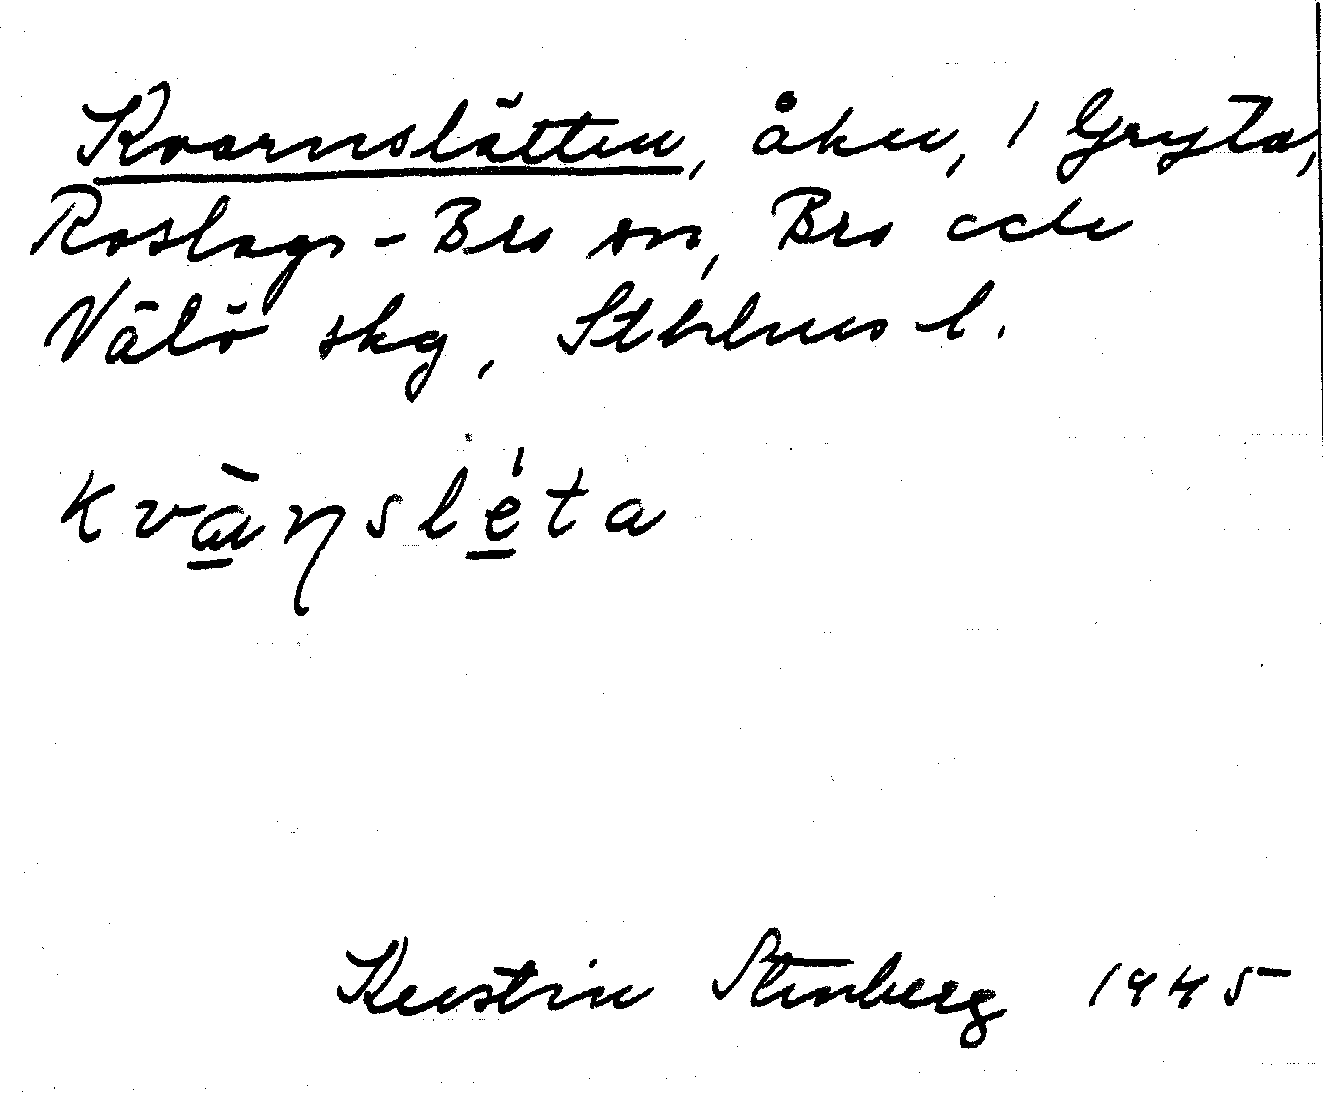 Kvarnslätten, åker, 1 Gryta,
Roslags-Bro sn, Bro och
Vätö skg, Sthlms l.
kvàṇsléta
Kerstin Stenberg 1945